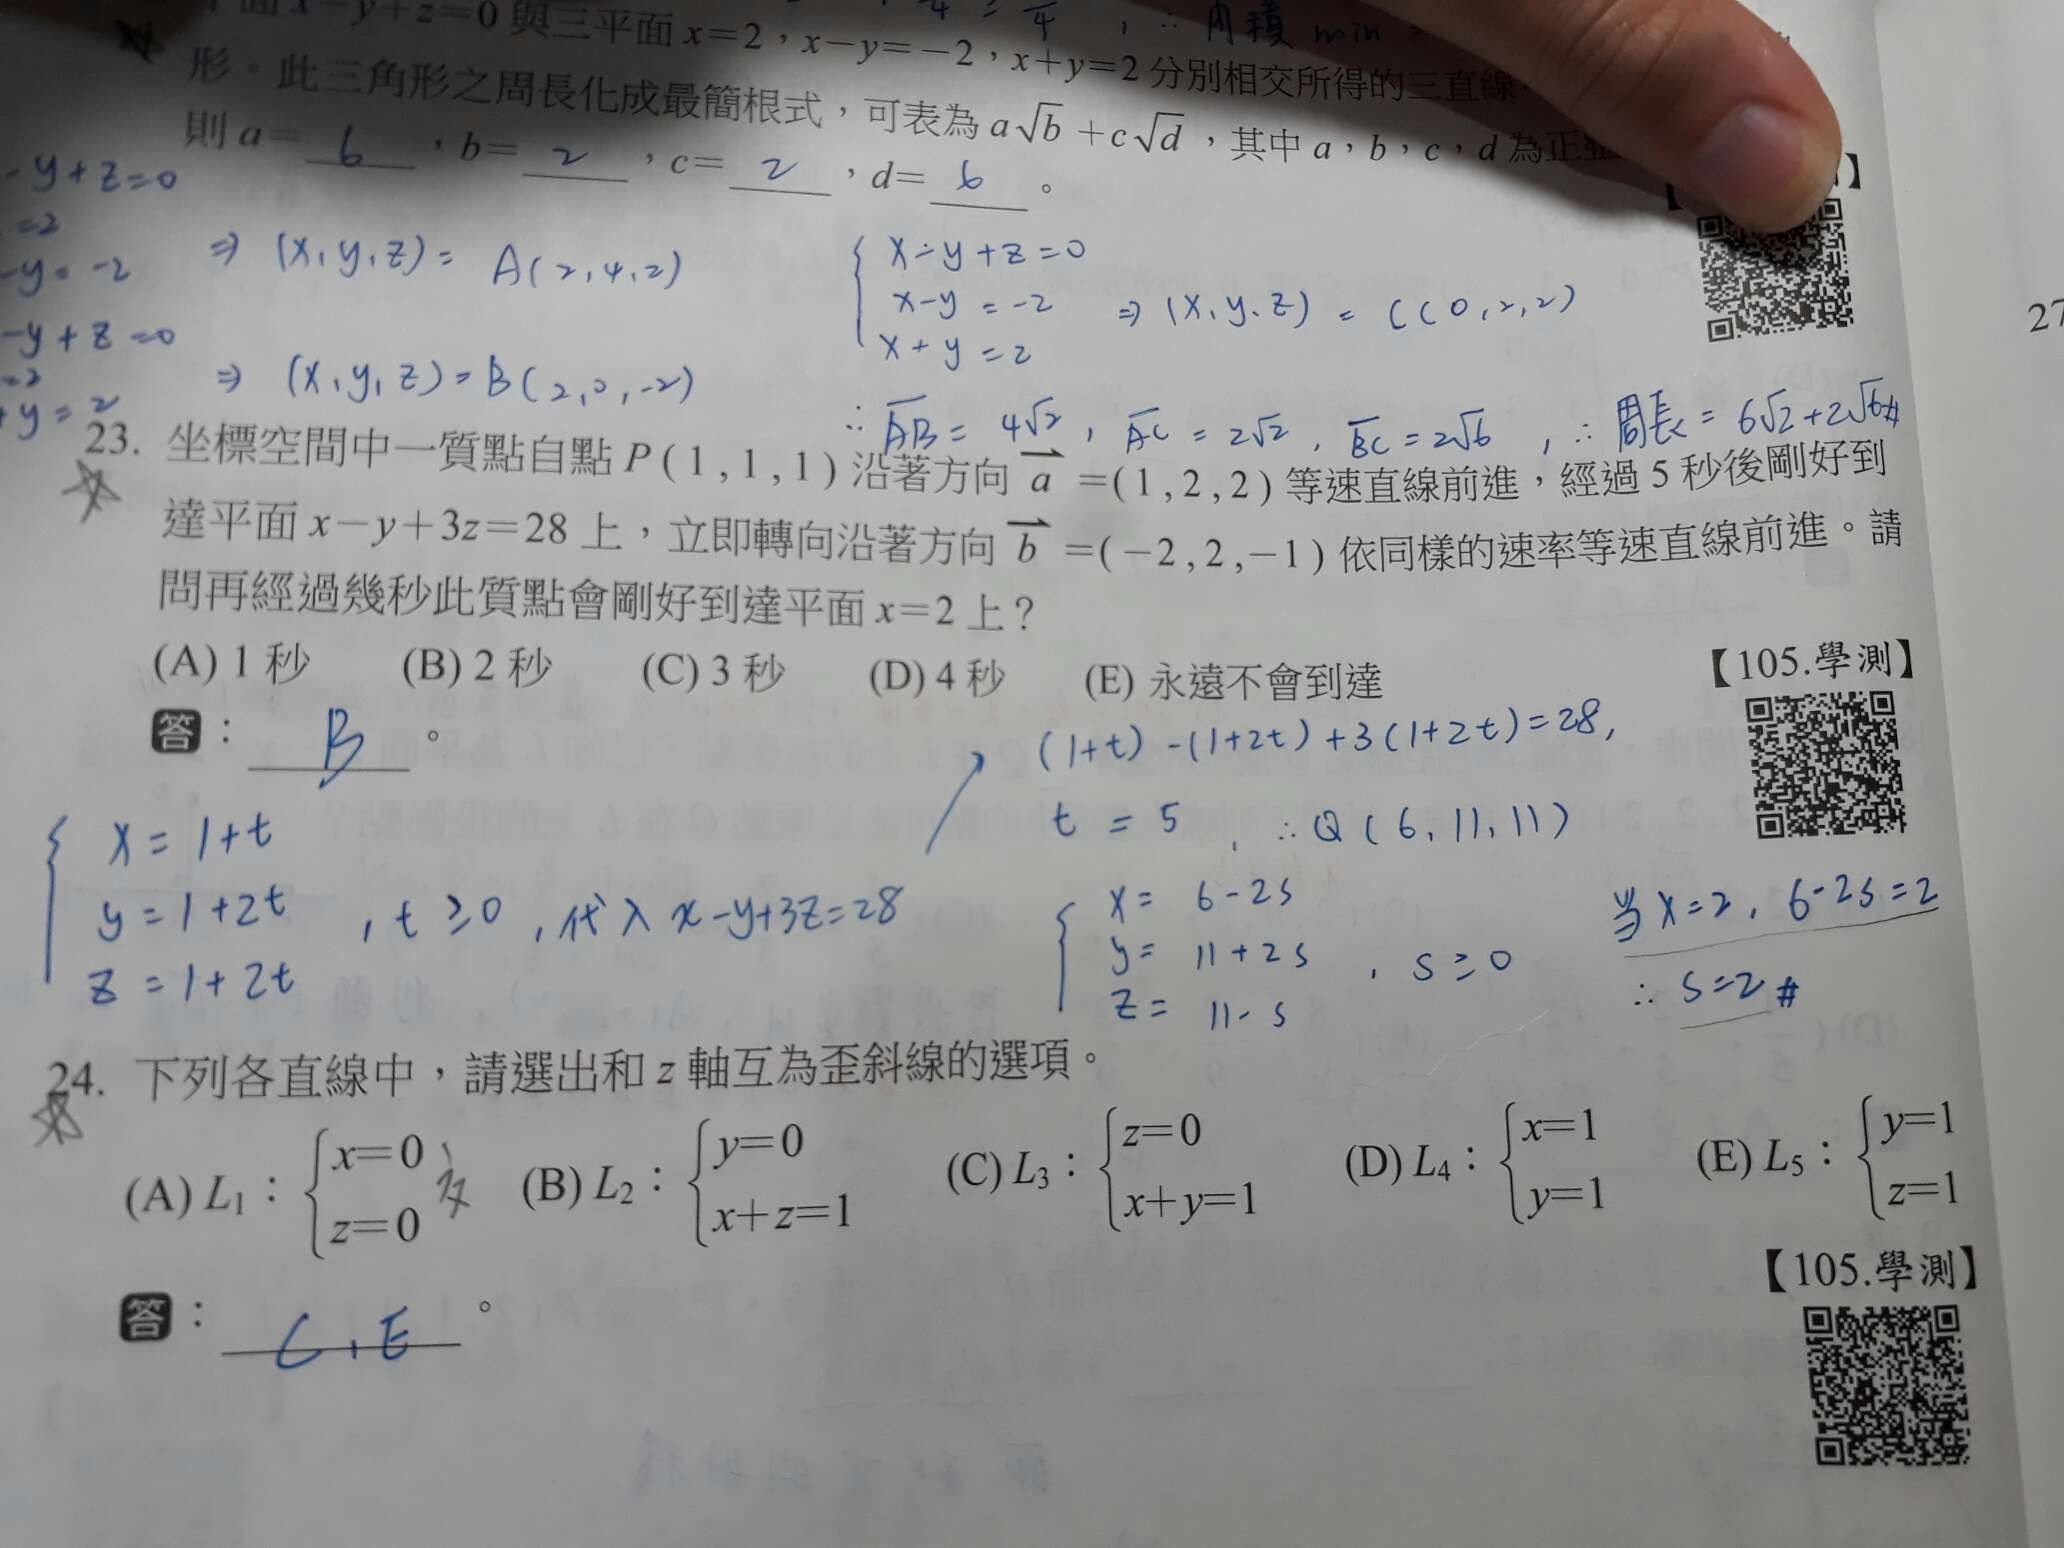 面 x−y+z=0 與三平面 x=2，x−y=−2，x+y=2 分別相交所得的三直線
∴ 內積 min =
形。此三角形之周長化成最簡根式，可表為 a√b +c√d，其中 a，b，c，d 為正整
則 a= 6 ，b= 2 ，c= 2 ，d= 6 。
-y+z=0
=2
-y=-2
⇒ (x,y,z)= A(2,4,2)
-y+z=0
=2
+y=2
⇒ (x,y,z)=B(2,0,-2)
x-y+z=0
x-y=-2 ⇒ (x,y,z) = C(0,2,2)
x+y=2
27
∴ AB = 4√2 , AC = 2√2 , BC = 2√6 , ∴ 周長 = 6√2+2√6#
23. 坐標空間中一質點自點 P(1,1,1) 沿著方向 a =(1,2,2) 等速直線前進，經過 5 秒後剛好到
達平面 x−y+3z=28 上，立即轉向沿著方向 b =(−2,2,−1) 依同樣的速率等速直線前進。請
問再經過幾秒此質點會剛好到達平面 x=2 上？
(A) 1 秒 (B) 2 秒 (C) 3 秒 (D) 4 秒 (E) 永遠不會到達
【105.學測】
答： B 。
(1+t) -(1+2t) +3(1+2t)=28,
t = 5 , ∴ Q (6,11,11)
x=1+t
y=1+2t , t≥0 , 代入 x-y+3z=28
z=1+2t
x= 6-2s
y= 11+2s , s≥0
z= 11-s
当 x=2, 6-2s=2
∴ s=2#
24. 下列各直線中，請選出和 z 軸互為歪斜線的選項。
(A) L1：{x=0 z=0 (B) L2：{y=0 x+z=1 (C) L3：{z=0 x+y=1 (D) L4：{x=1 y=1 (E) L5：{y=1 z=1
【105.學測】
答： C , E 。